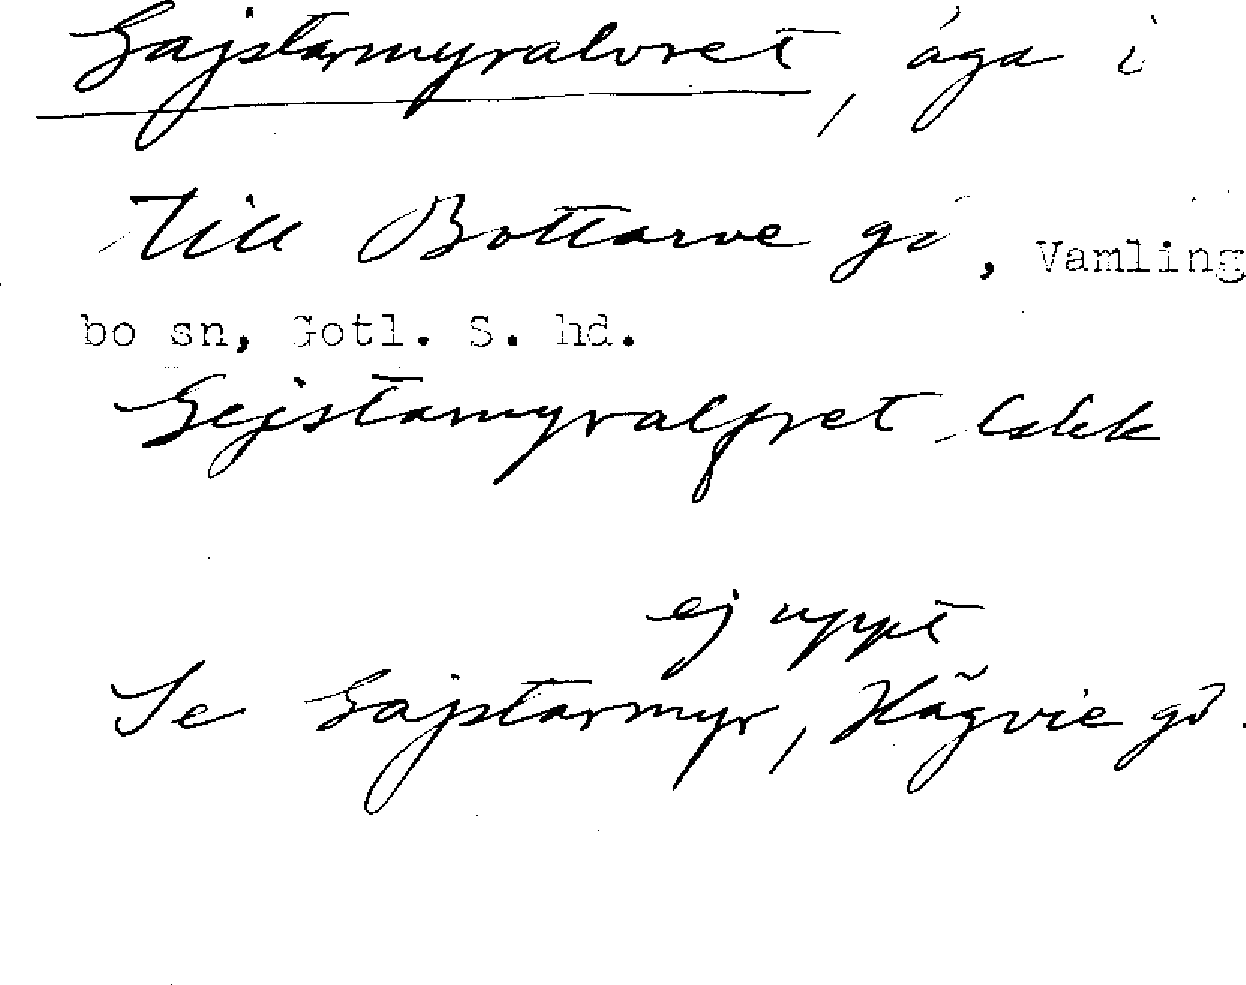 Gajstarmyralvret, äga i
till Bottarve gd, Vamling
bo sn, Gotl. S. hd.
Gejstamyralfret Lskk
ej uppt
Se Gajstarmyr, Hägvie gd.